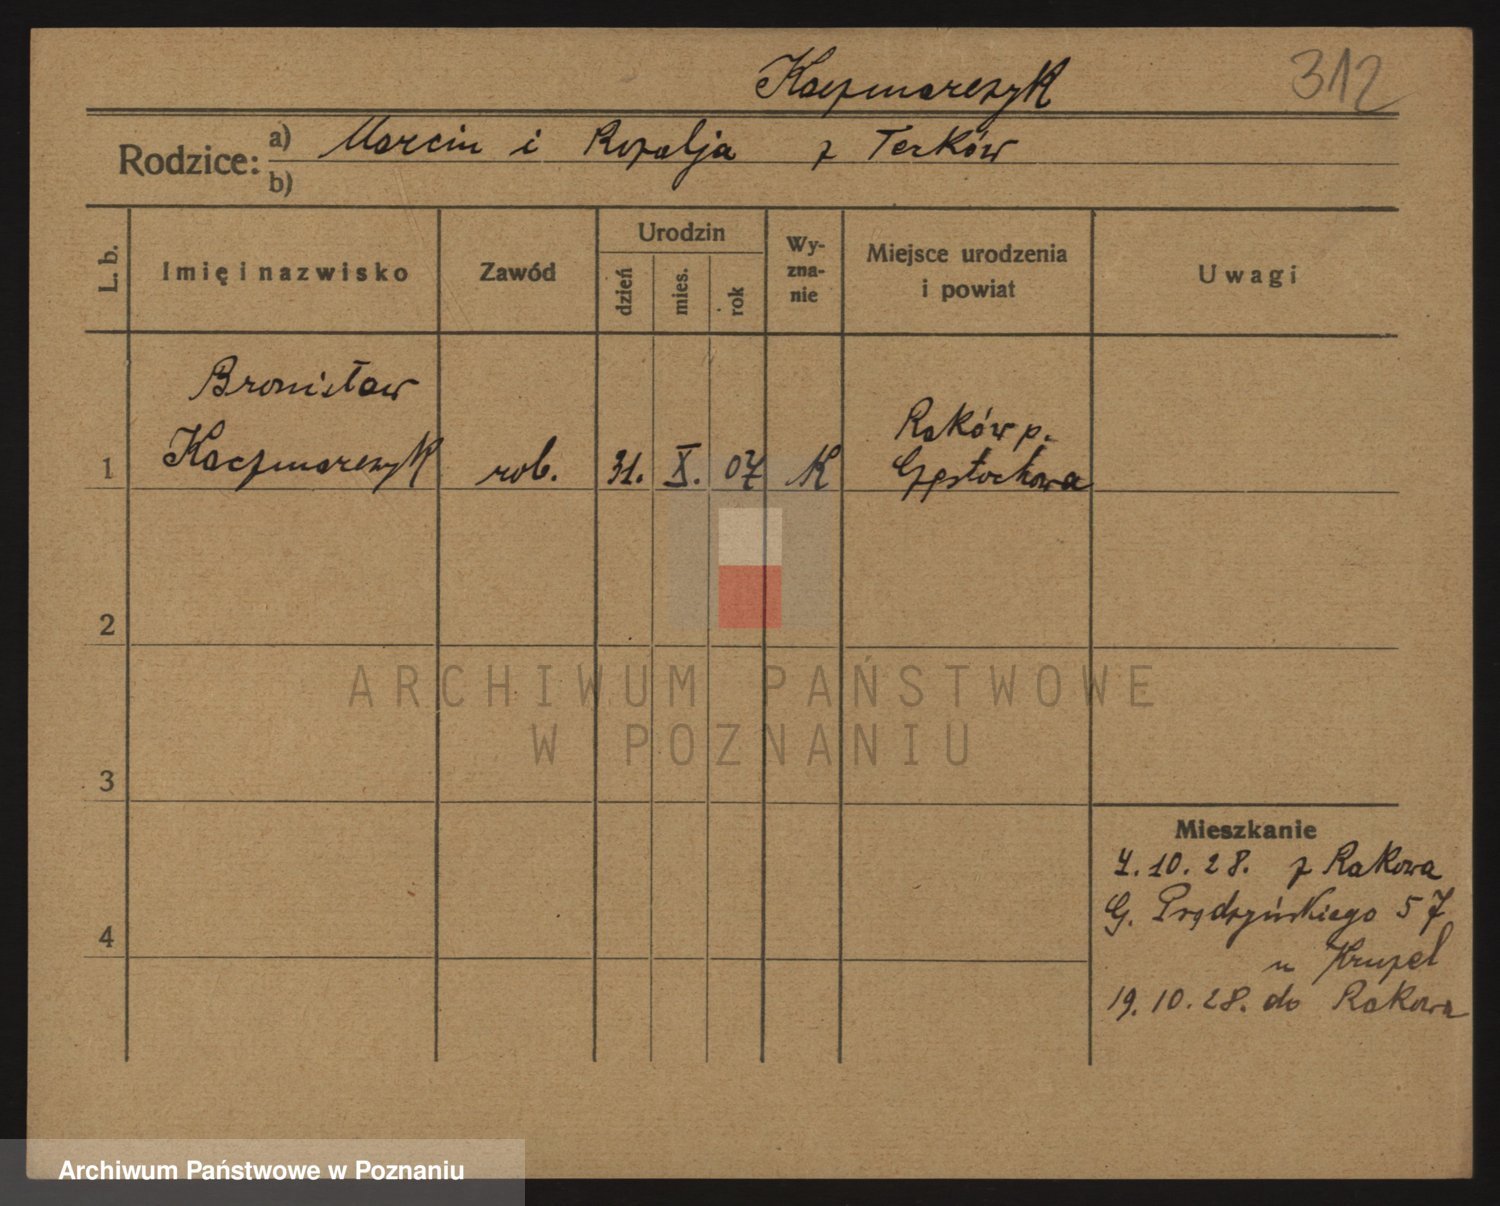 Kaczmarczyk 312
Rodzice: a) Marcin i Rozalja z Terków
b)
L. b. Imię i nazwisko Zawód Urodzin dzień mies. rok Wy-zna-nie Miejsce urodzenia i powiat Uwagi
Bronisław
Kaczmarczyk rob. 31. X. 07 K Raków p.
1 Częstochowa
2
ARCHIWUM PAŃSTWOWE
W POZNANIU
3
Mieszkanie
7.10.28. z Rakowa
G. Prądzyńskiego 57
4
u Krupel
19.10.28. do Rakowa
Archiwum Państwowe w Poznaniu